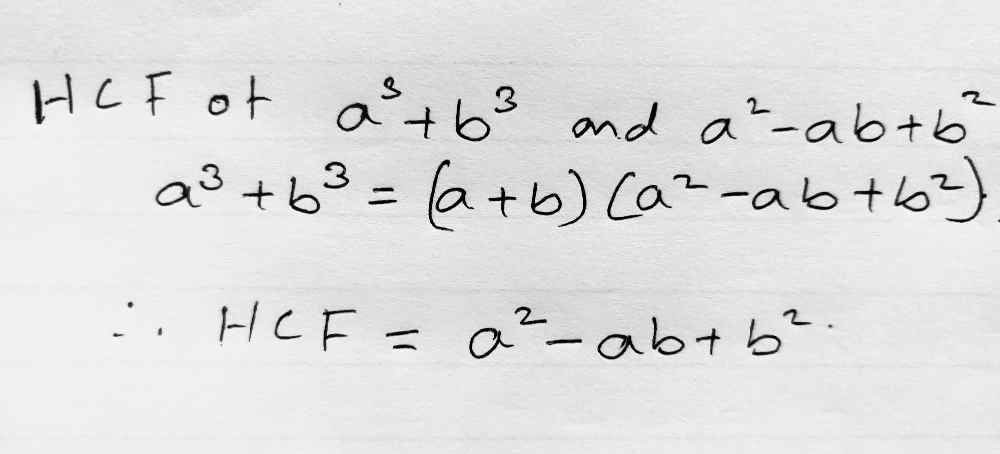 HCF of a³+b³ and a²-ab+b²
a³+b³ = (a+b)(a²-ab+b²)
∴ HCF = a²-ab+b².